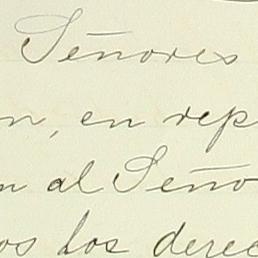 Señores
n, en rep
n al Seño
os los derec